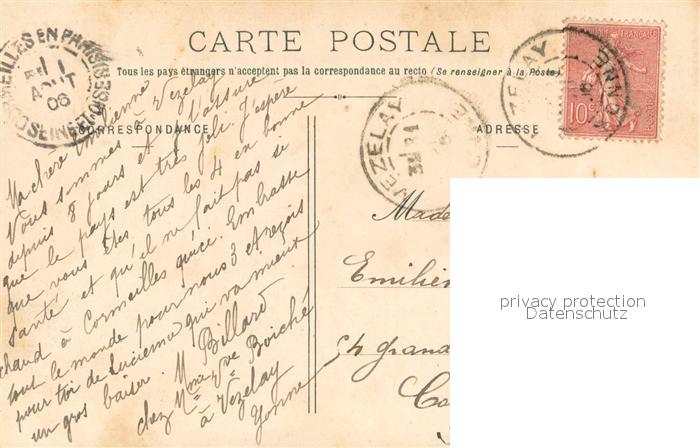 CARTE POSTALE
Tous les pays étrangers n'acceptent pas la correspondance au recto (Se renseigner à la Poste)
CORRESPONDANCE
ADRESSE
CORMEILLES EN PARISIS
SEINE-ET-OISE
1
AOUT
06
VEZELAY
VEZELAY
YONNE
10c
Ma chère Emilienne
Nous sommes à Vezelay
depuis 8 jours et j't'assure
que le pays est très joli. J'espère
que vous êtes tous les 4 en bonne
santé et qu'il ne fait pas si
chaud à Cormeilles qu'ici. Embrasse
tout le monde pour nous 3 et reçois
pour toi de Lucienne qui va mieux
un gros baiser. M. Billard
chez Mme Vve Boiché
à Vézelay
Yonne
Made
Emilien
Grand
Co
privacy protection
Datenschutz